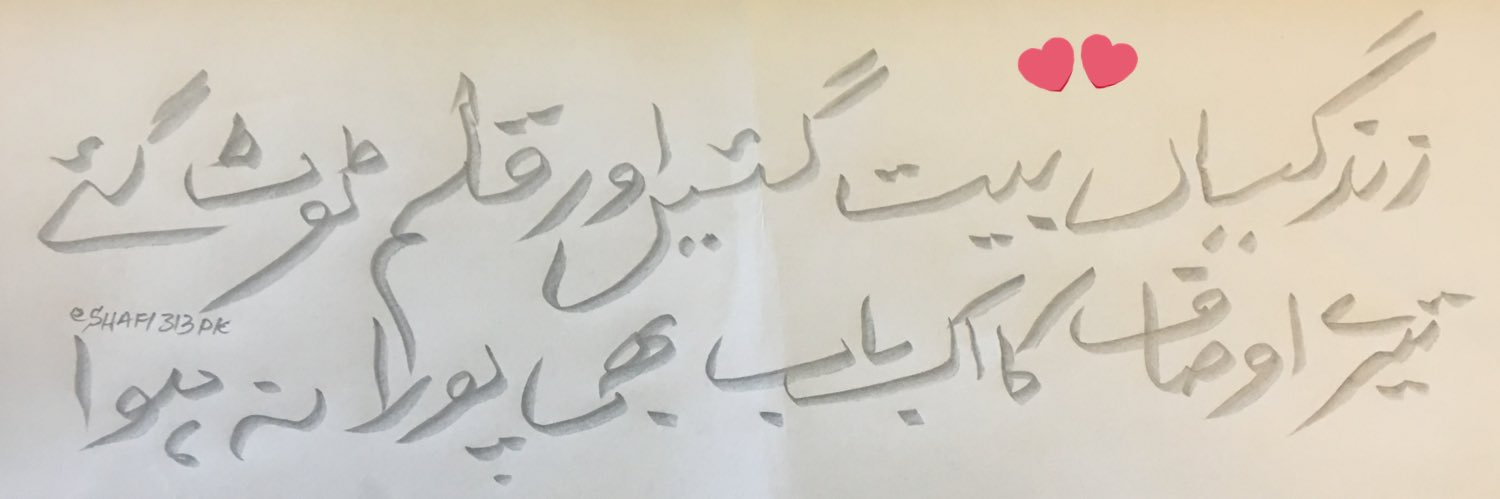 زندگیاں بیت گئیں اور قلم ٹوٹ گئے
تیرے اوصاف کا اک باب بھی پورا نہ ہوا
@SHAFI313PK